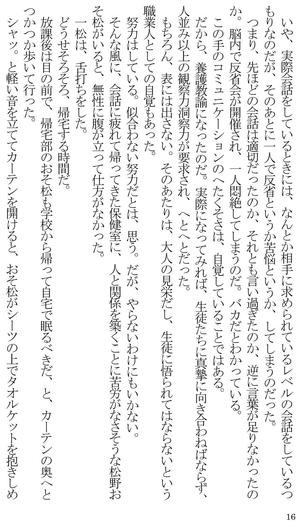 いや、実際会話をしているときには、なんとか相手に求められているレベルの会話をしているつ
もりなのだが、そのあとに一人で反省というか苦悩というか、してしまうのだった。
つまり、先ほどの会話は適切だったのか、それとも言い過ぎたのか、逆に言葉が足りなかったの
か。脳内で反省会が開催され、一人悶絶してしまうのだ。バカだとわかっている。
この手のコミュニケーションのへたくそさは、自覚していることではある。
だから、養護教諭になったのだ。実際になってみれば、生徒たちに真摯に向き合わねばならず、
人並み以上の観察力洞察力が要求され、へとへとだった。
もちろん、表には出さない。そのあたりは、大人の見栄だし、生徒に悟られてはならないという
職業人としての自覚もあった。
努力はしている。似合わない努力だとは、思う。だが、やらないわけにもいかない。
そんな風に、会話に疲れて帰ってきた保健室に、人と関係を築くことに苦労がなさそうな松野お
そ松がいると、無性に腹が立って仕方がなかった。
一松は、舌打ちをした。
どうせそろそろ、帰宅する時間だ。
放課後は目の前で、帰宅部のおそ松も学校から帰って自宅で眠るべきだ、と、カーテンの奥へと
つかつか歩いて行った。
シャッ、と軽い音を立ててカーテンを開けると、おそ松がシーツの上でタオルケットを抱きしめ
16